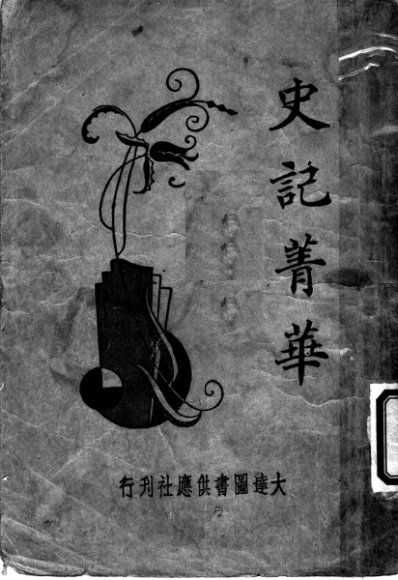 史記菁華
大達圖書供應社刊行